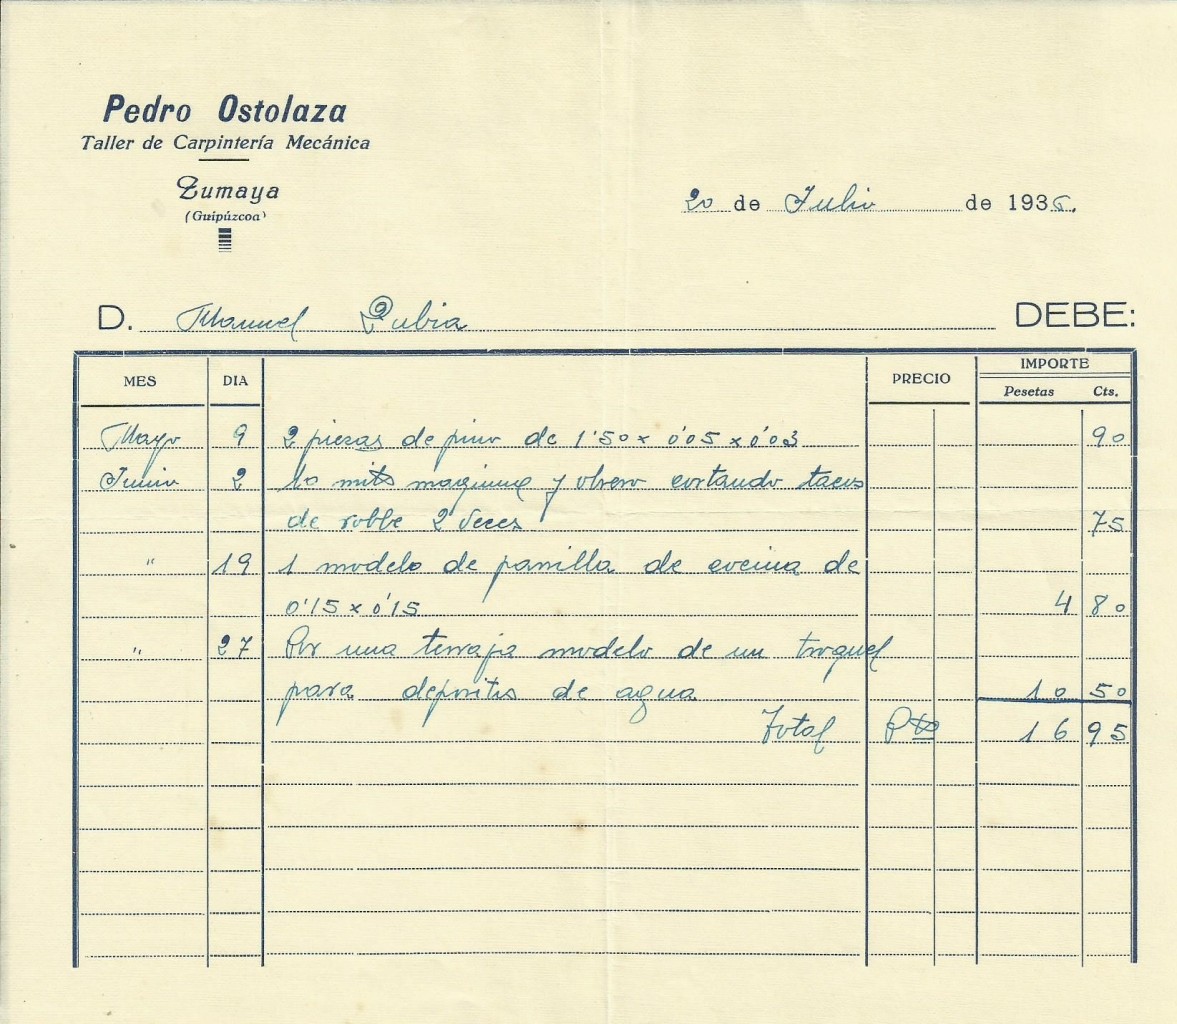 Pedro Ostolaza
Taller de Carpintería Mecánica
Zumaya
(Guipúzcoa)
20 de Julio de 1936.
D. Manuel Zubia DEBE:
MES DIA PRECIO IMPORTE
Pesetas Cts.
Mayo 9 2 piezas de pino de 1'50 x 0'05 x 0'03 90
Junio 2 10 mits maquina y obrero cortando tacos
de roble 2 veces 75
" 19 1 modelo de parrilla de cocina de
0'15 x 0'15 4 80
" 27 Por una terraja modelo de un troquel
para depositos de agua 10 50
Total Pts 16 95